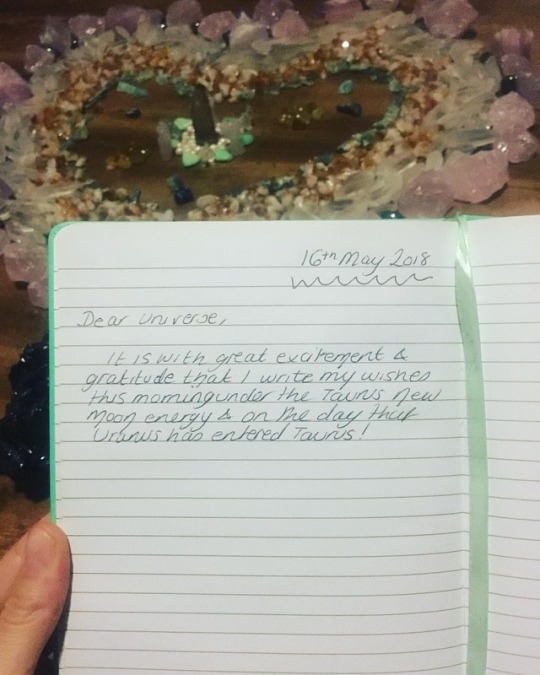 16th May 2018
Dear Universe,
It is with great excitement &
gratitude that I write my wishes
this morning under the Taurus New
Moon energy & on the day that
Uranus has entered Taurus!